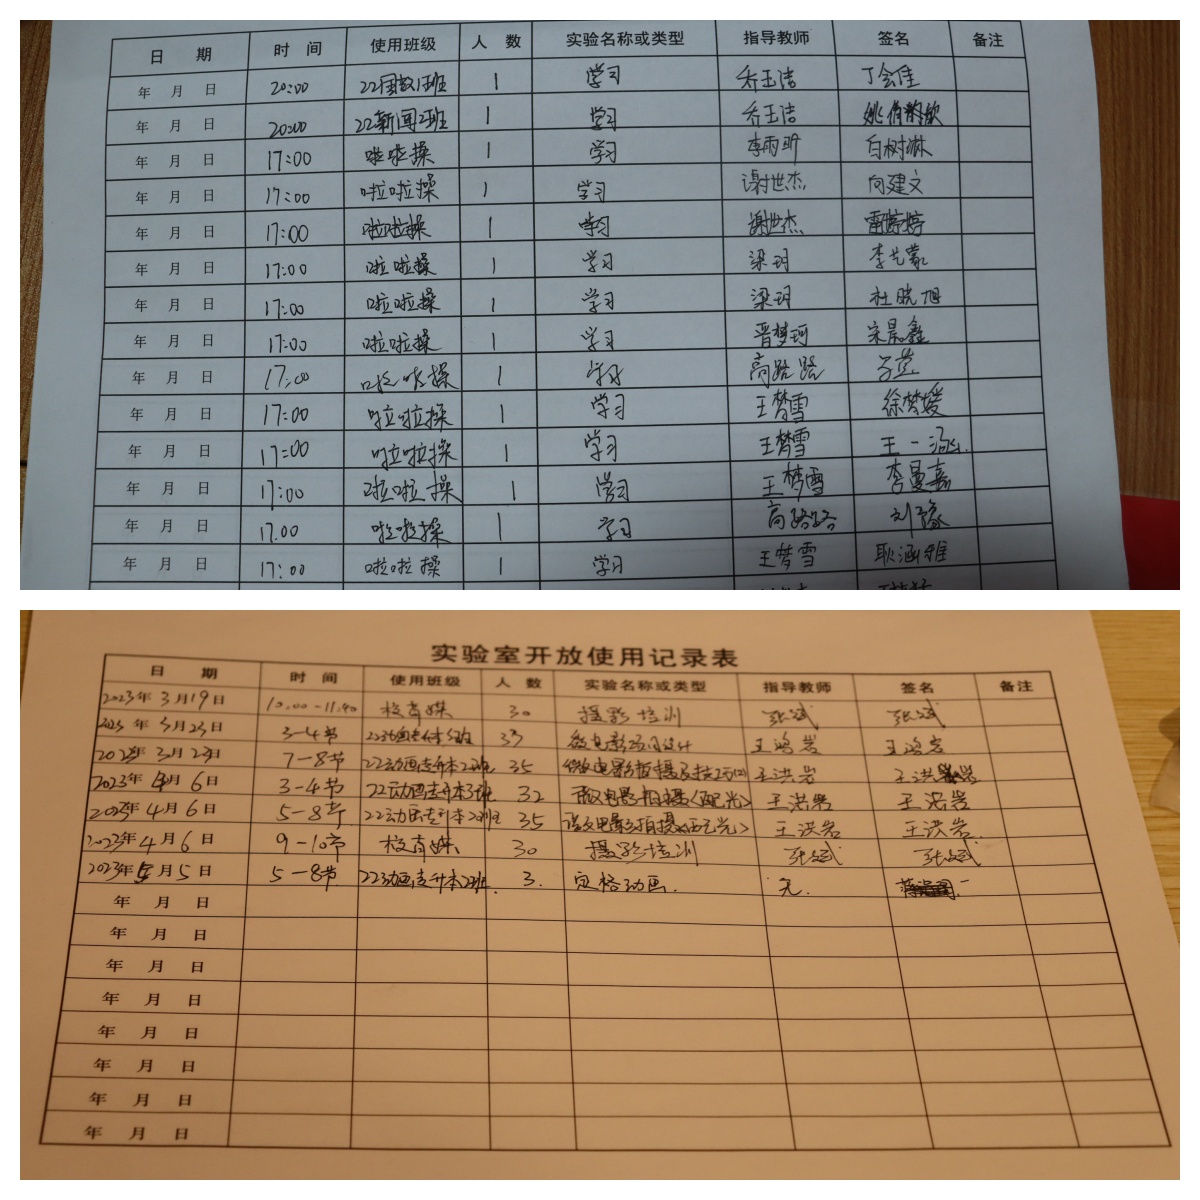 日 期 时 间 使用班级 人 数 实验名称或类型 指导教师 签名 备注
年 月 日 20:00 22国数1班 1 学习 乔玉洁 丁会佳
年 月 日 20:00 22新闻2班 1 学习 乔玉洁
年 月 日 17:00 啦啦操 1 学习 李雨昕 白树淋
年 月 日 17:00 啦啦操 1 学习 谢世杰 向建文
年 月 日 17:00 啦啦操 1 学习 谢世杰 雷婷婷
年 月 日 17:00 啦啦操 1 学习 梁玥 李艺蒙
年 月 日 17:00 啦啦操 1 学习 梁玥 杜晓旭
年 月 日 17:00 啦啦操 1 学习 晋梦珂 宋晨鑫
年 月 日 17:00 啦啦操 1 学习 高路路
年 月 日 17:00 啦啦操 1 学习 王梦雪 徐梦媛
年 月 日 17:00 啦啦操 1 学习 王梦雪 王一涵
年 月 日 17:00 啦啦操 1 学习 王梦雪 李曼嘉
年 月 日 17.00 啦啦操 1 学习 高路路 刘豫
年 月 日 17:00 啦啦操 1 学习 王梦雪 耿涵雅
实验室开放使用记录表
日 期 时 间 使用班级 人 数 实验名称或类型 指导教师 签名 备注
2023年 3月19日 10:00-11:40 校育媒 30 摄影培训 张斌 张斌
2023年 3月23日 3-4节 22动画专升本 班 33 微电影项目设计 王鸿岩 王鸿岩
2023年 3月27日 7-8节 22动画专升本2班 35 微电影拍摄及技巧(2) 王洪岩 王洪岩
2023年 4月6日 3-4节 22动画专升本3班 32 微电影拍摄(配光) 王洪岩 王洪岩
2023年 4月6日 5-8节 22动画专升本2班 35 微电影拍摄(配光) 王洪岩 王洪岩
2023年 4月6日 9-10节 校育媒 30 摄影培训 张斌 张斌
2023年 5月5日 5-8节 22动画专升本2班 3. 定格动画. 无.
年 月 日
年 月 日
年 月 日
年 月 日
年 月 日
年 月 日
年 月 日
年 月 日